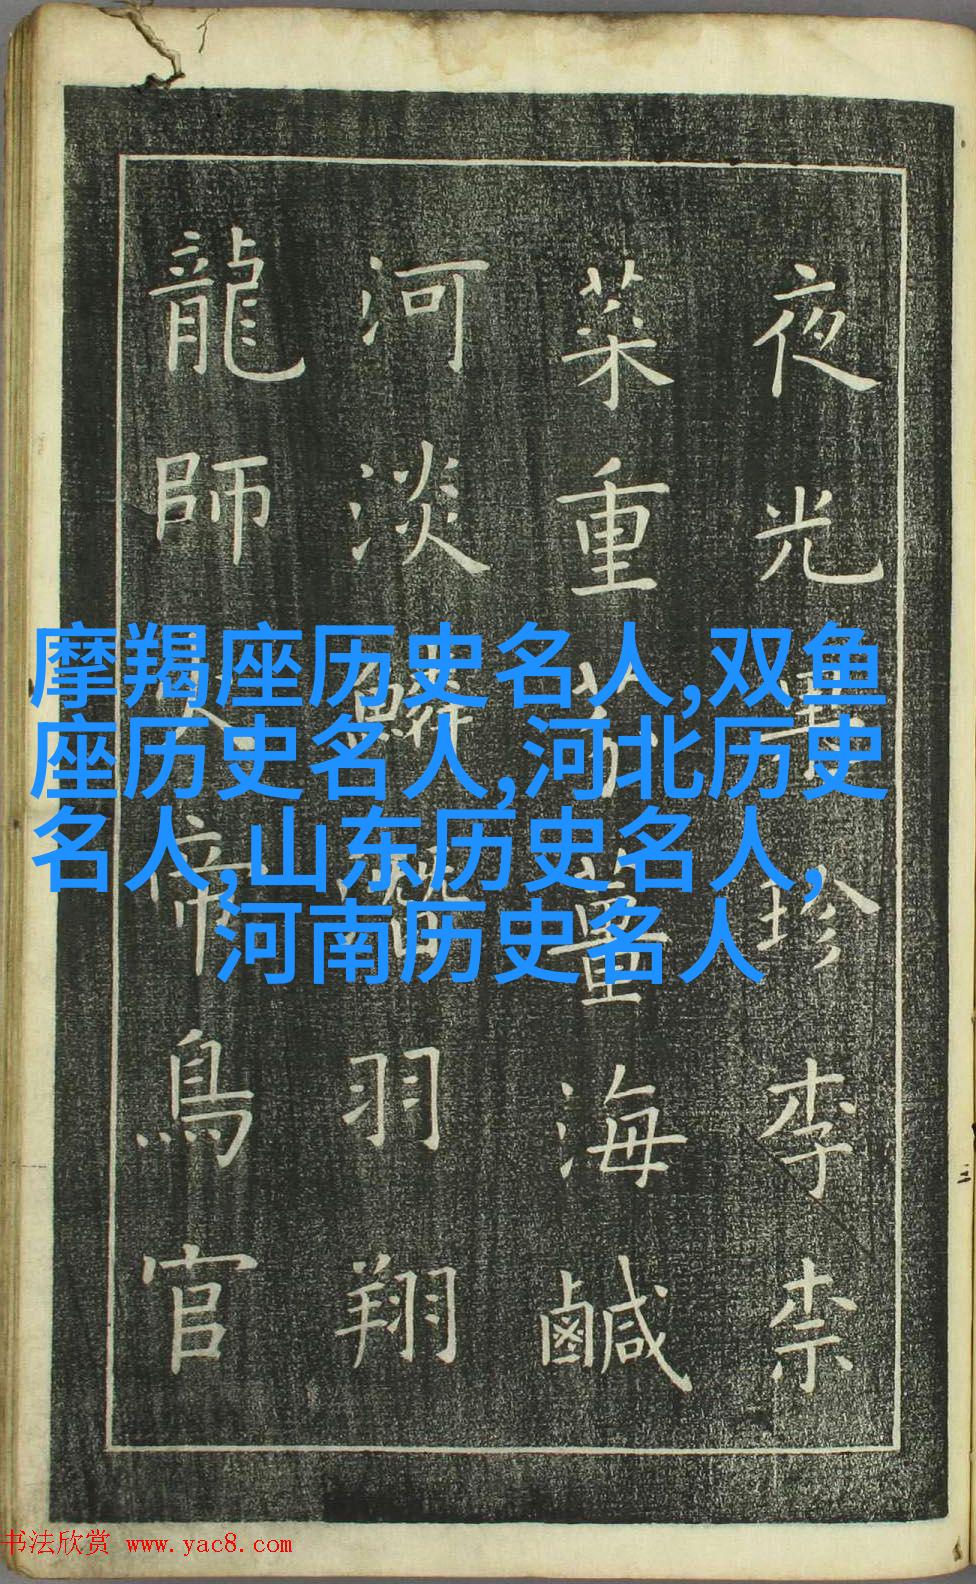 夜光珍李柰
菜重芥薑海鹹
河淡鱗潛羽翔
龍師火帝鳥官
摩羯座历史名人,双鱼
座历史名人,河北历史
名人,山东历史名人,
河南历史名人
书法欣赏 www.yac8.com